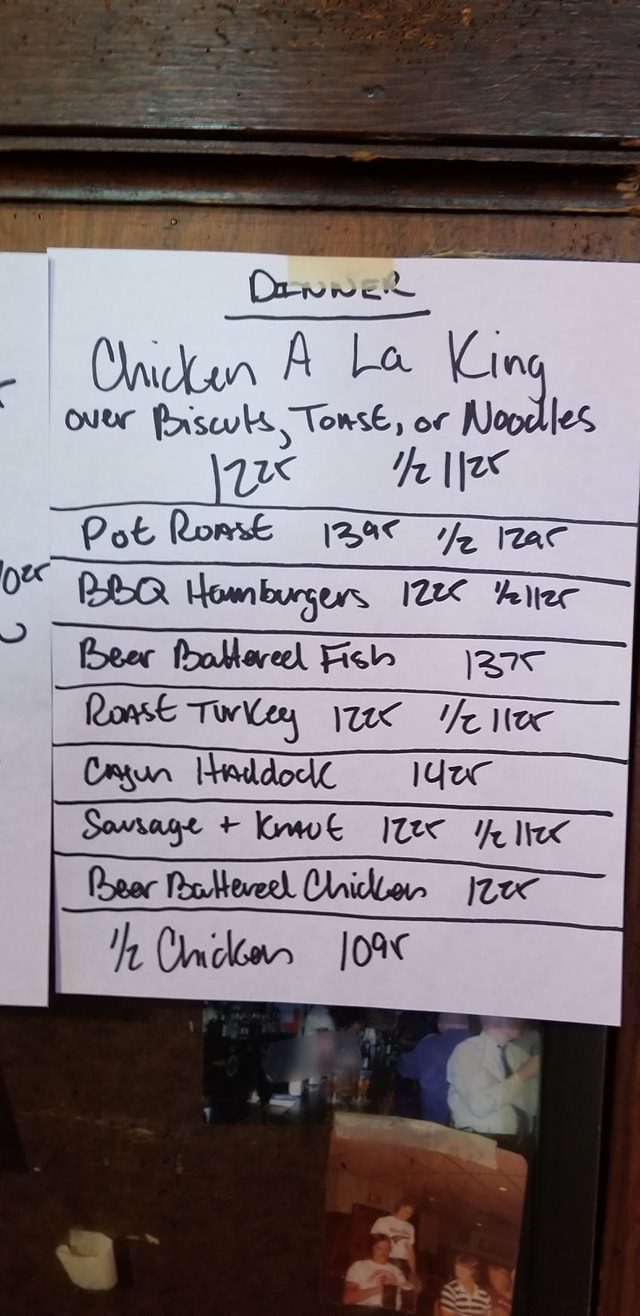 DINNER
Chicken A La King
over Biscuts, Toast, or Noodles
1225 1/2 1125
Pot Roast 1395 1/2 1295
BBQ Hamburgers 1225 1/2 1125
Beer Battered Fish 1375
Roast Turkey 1225 1/2 1125
Cajun Haddock 1425
Sausage + Kraut 1225 1/2 1125
Beer Battered Chicken 1225
1/2 Chicken 1095